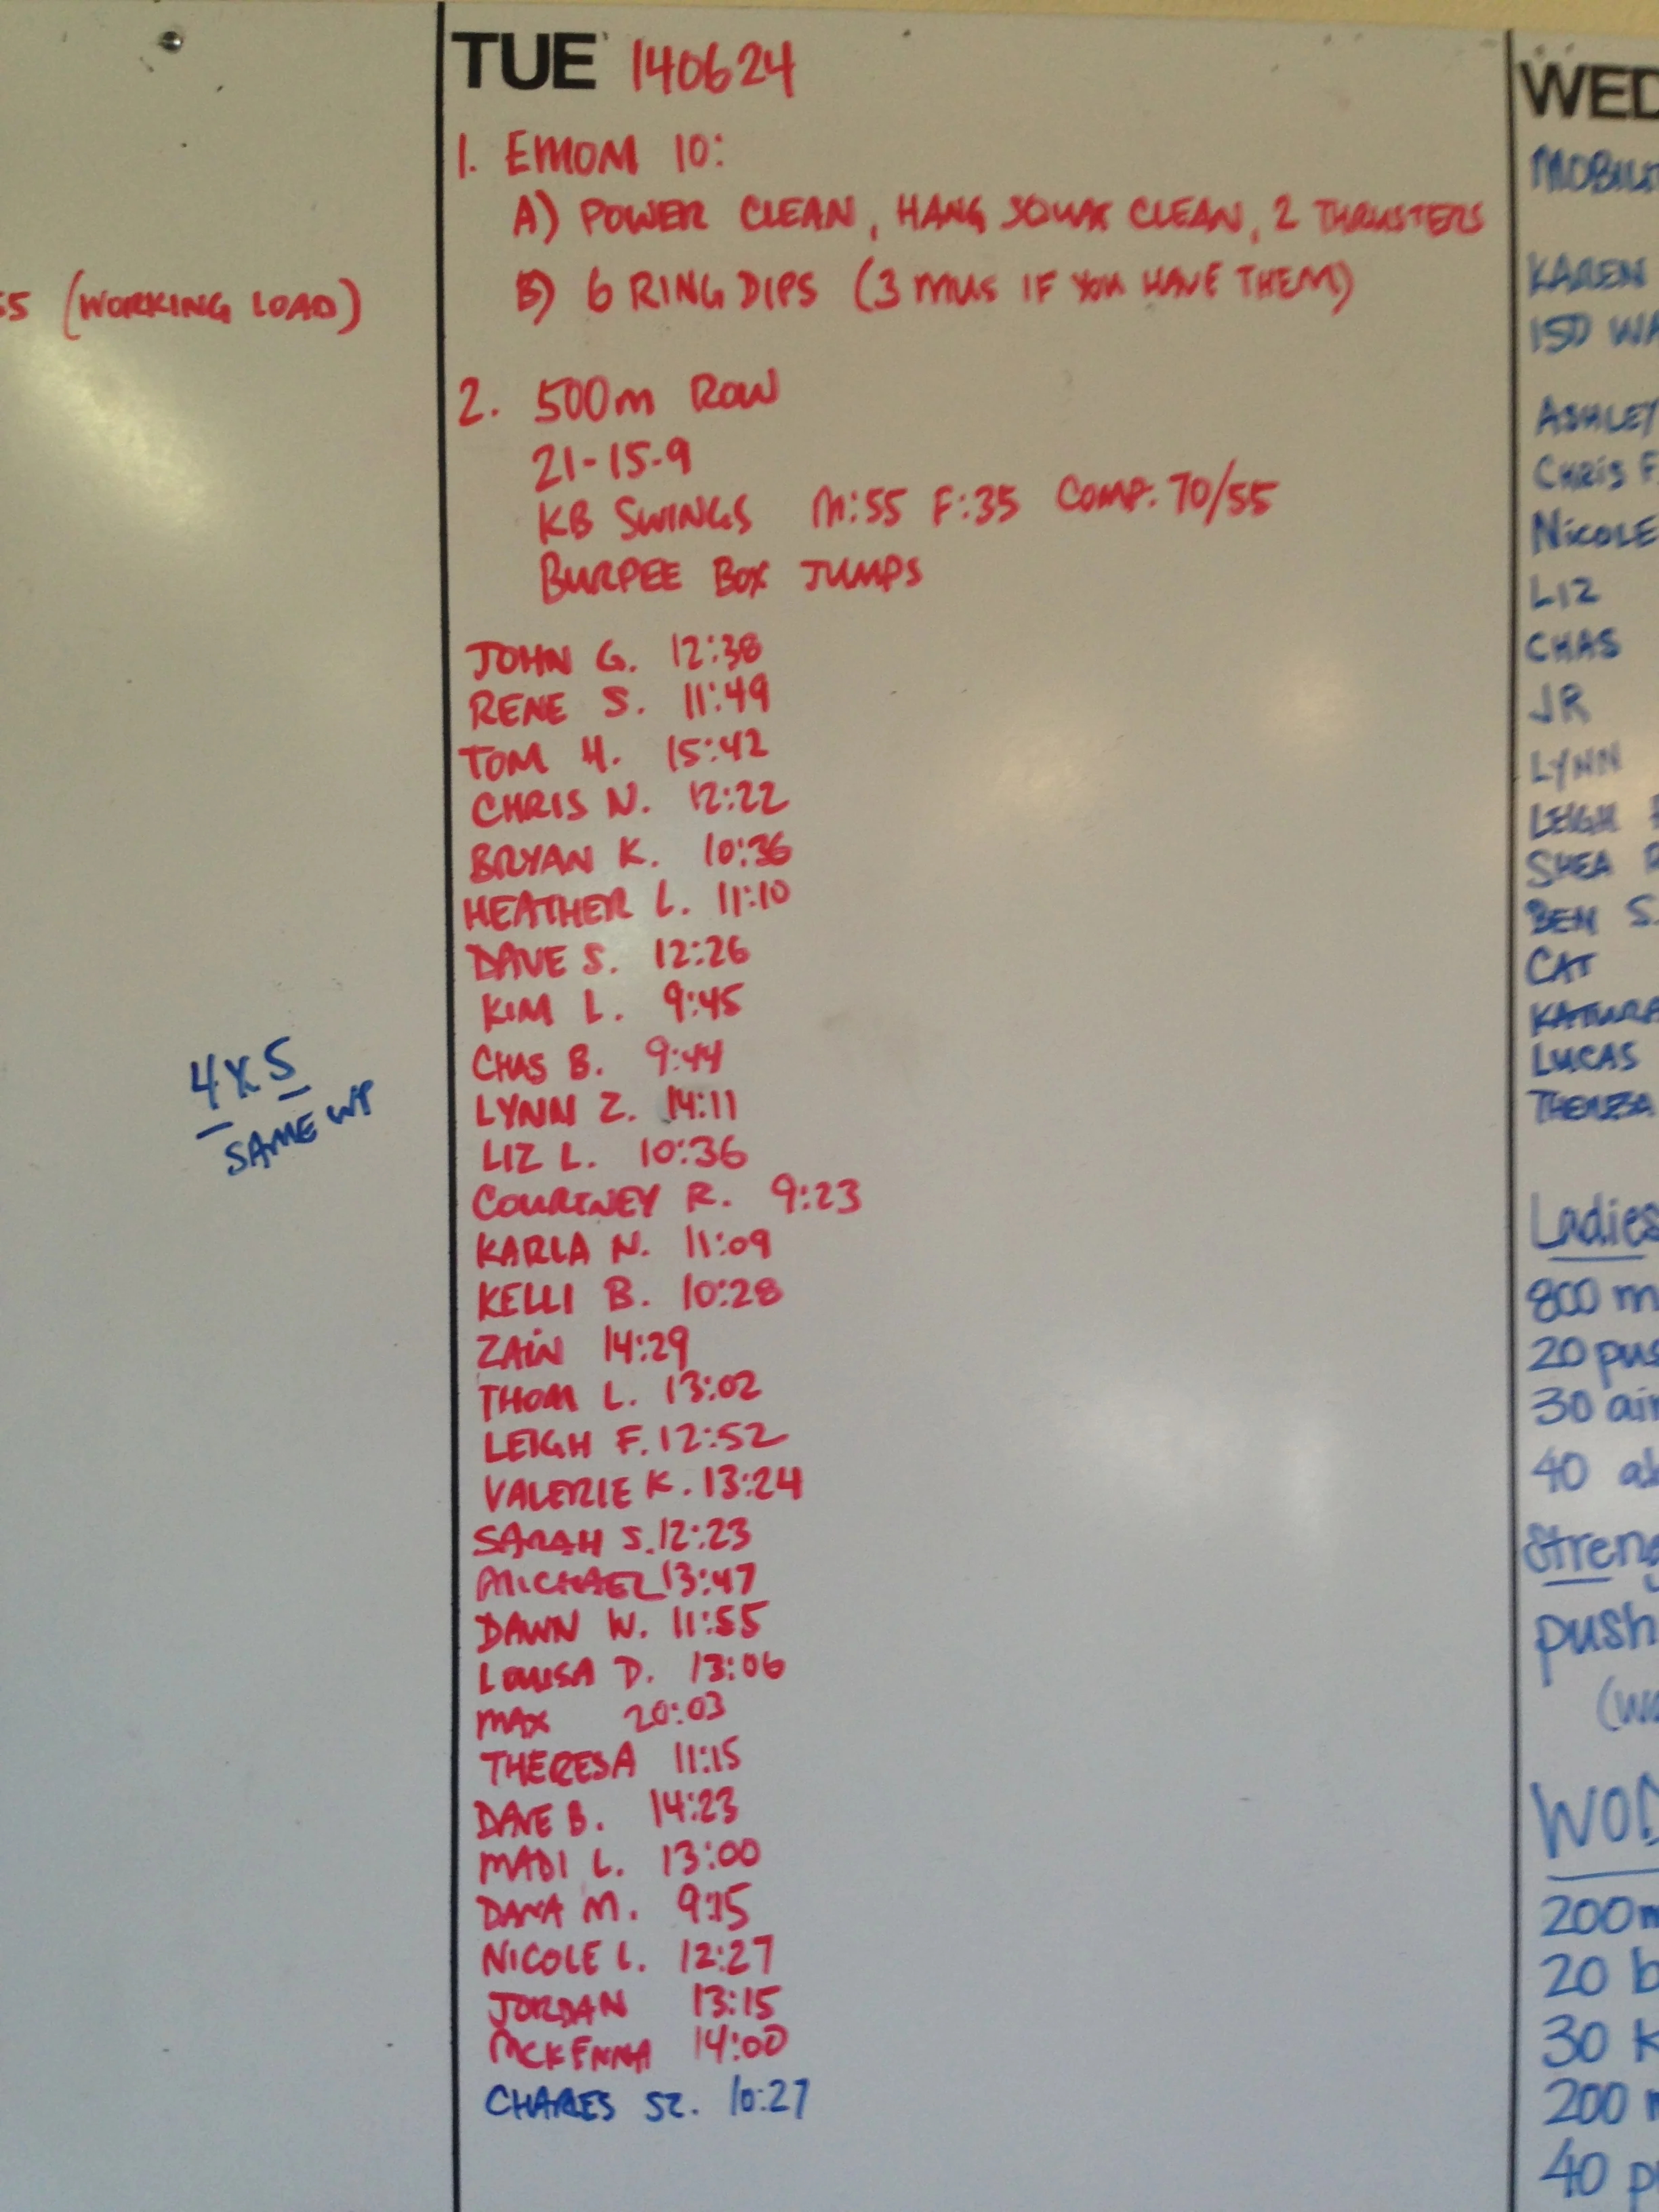 5 (WORKING LOAD)
4X5
SAME WT
TUE 140624
1. EMOM 10:
A) POWER CLEAN, HANG SQUAT CLEAN, 2 THRUSTERS
B) 6 RING DIPS (3 MUS IF YOU HAVE THEM)
2. 500m ROW
21-15-9
KB SWINGS M:55 F:35 COMP: 70/55
BURPEE BOX JUMPS
JOHN G. 12:38
RENE S. 11:49
TOM H. 15:42
CHRIS N. 12:22
BRYAN K. 10:36
HEATHER L. 11:10
DAVE S. 12:26
KIM L. 9:45
CHAS B. 9:44
LYNN Z. 14:11
LIZ L. 10:36
COURTNEY R. 9:23
KARLA N. 11:09
KELLI B. 10:28
ZAIN 14:29
THOM L. 13:02
LEIGH F. 12:52
VALERIE K. 13:24
SARAH S. 12:23
MICHAEL 13:47
DAWN W. 11:55
LOUISA D. 13:06
MAX 20:03
THERESA 11:15
DAVE B. 14:23
MADI L. 13:00
DANA M. 9:15
NICOLE L. 12:27
JORDAN 13:15
MCKENNA 14:00
CHARLES SZ. 10:27
WED
MOBIL
KAREN
150 WA
ASHLEY
CHRIS F
NICOLE
LIZ
CHAS
JR
LYNN
LEIGH
SHEA
BEN S.
CAT
LUCAS
Ladies
800 m
20 pus
30 air
40 ab
Streng
push
(wo
WOD
200m
20 b
30 K
200 m
40 p